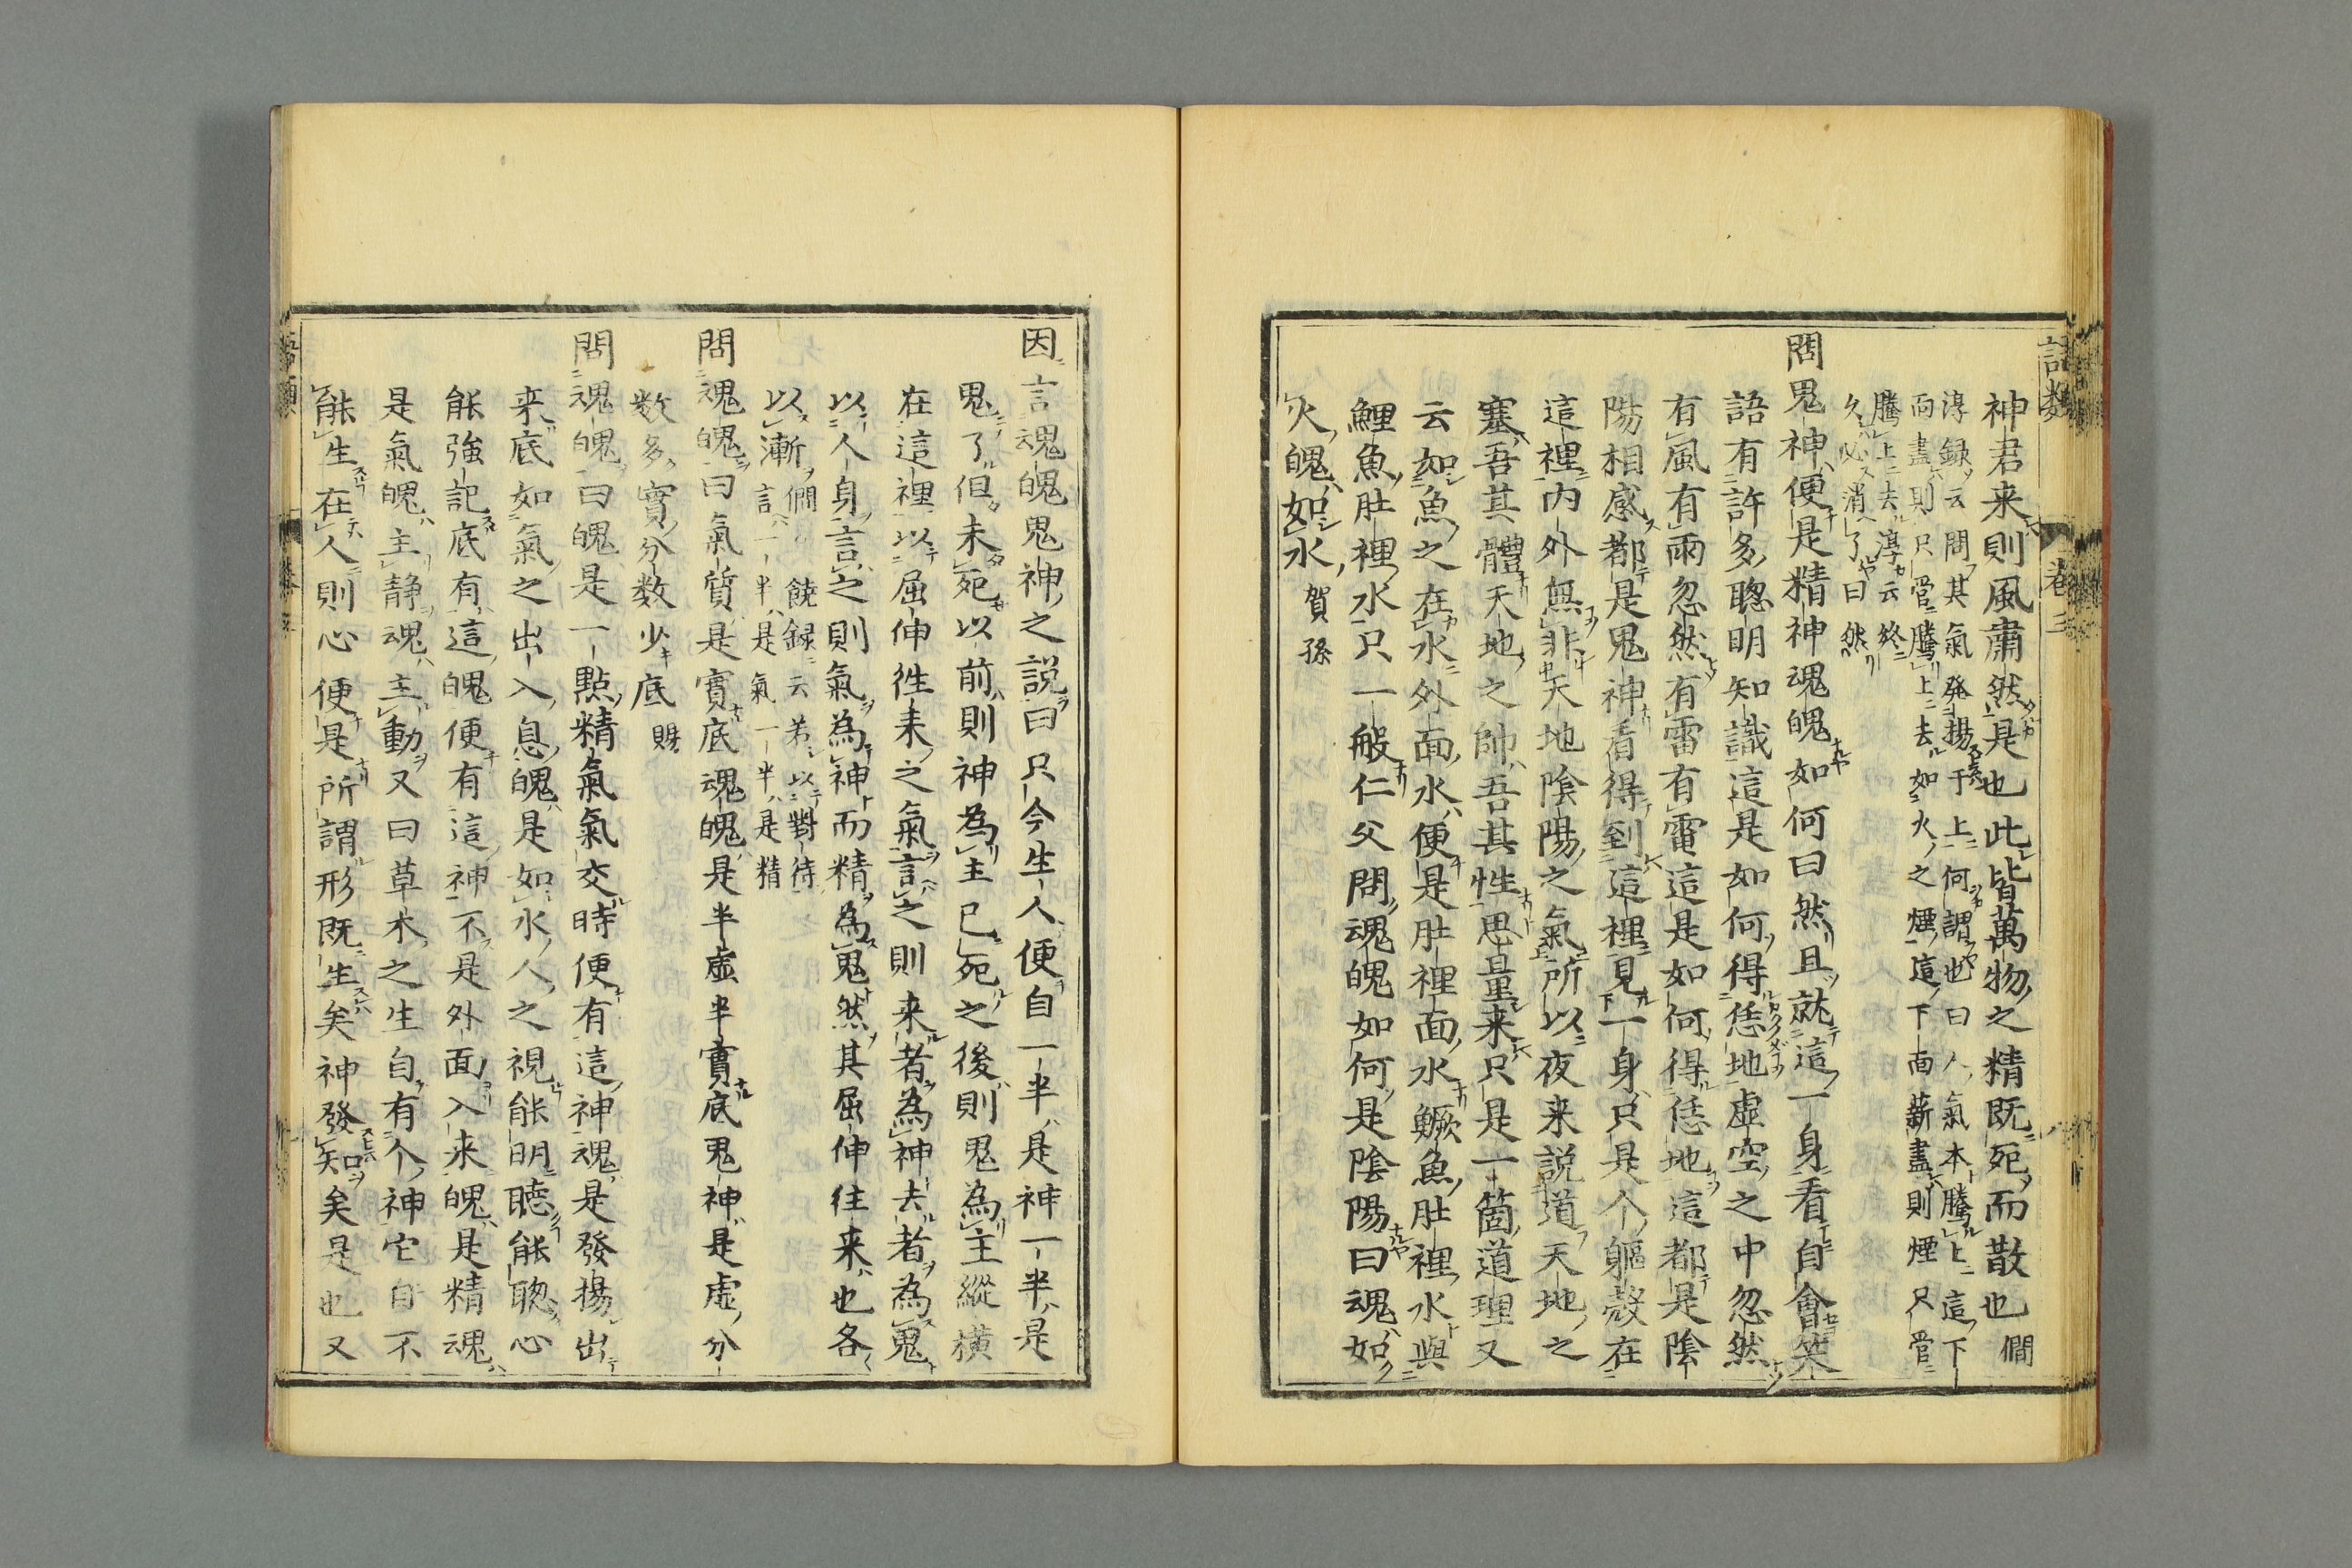 語類 卷三
神君来則風肅然是也此皆萬物之精既死而散也 僩
淳録云問其氣発揚于上何謂也曰人氣本騰上這下
面盡則只管騰上去如火之煙這下面薪盡則煙只管
騰上去淳云終
久必消了曰然
問鬼神便是精神魂魄如何曰然且就這一身看自會笑
語有許多聰明知識這是如何得恁地虚空之中忽然
有風有雨忽然有雷有電這是如何得恁地這都是陰
陽相感都是鬼神看得到這裡見一身只是个軀殻在
這裡内外無非天地陰陽之氣所以夜来説道天地之
塞吾其體天地之帥吾其性思量来只是一箇道理又
云如魚之在水外面水便是肚裡面水鱖魚肚裡水與
鯉魚肚裡水只一般仁父問魂魄如何是陰陽曰魂如
火魄如水 賀孫
因言魂魄鬼神之説曰只今生人便自一半是神一半是
鬼了但未死以前則神為主已死之後則鬼為主縱横
在這裡以屈伸徃来之氣言之則来者為神去者為鬼
以人身言之則氣為神而精為鬼然其屈伸往来也各
以漸 僩 饒録云若以對待
言一半是氣一半是精
問魂魄曰氣質是實底魂魄是半虚半實底鬼神是虚分
数多實分数少底 賜
問魂魄曰魄是一點精氣氣交時便有這神魂是發揚出
来底如氣之出入息魄是如水人之視能明聴能聰心
能強記底有這魄便有這神不是外面入来魄是精魂
是氣魄主静魂主動又曰草木之生自有个神它自不
能生在人則心便是所謂形既生矣神發知矣是也又
語類